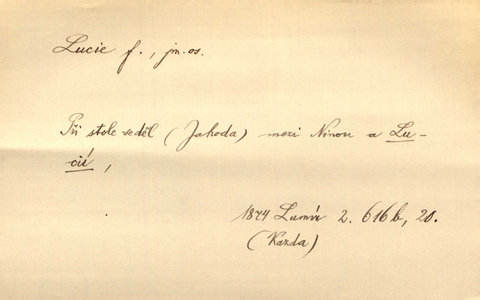 Lucie f., jm. os.
Při stole seděl (Jahoda) mezi Ninou a Lu-
cií,
1874 Lumír 2. 616b, 20.
(Kazda)